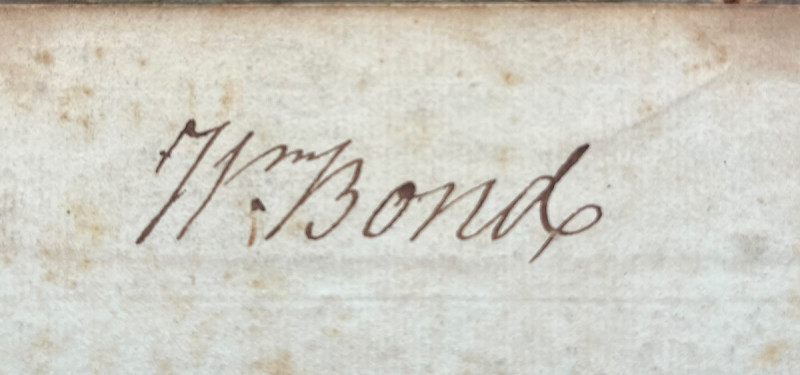 Wm. Bond